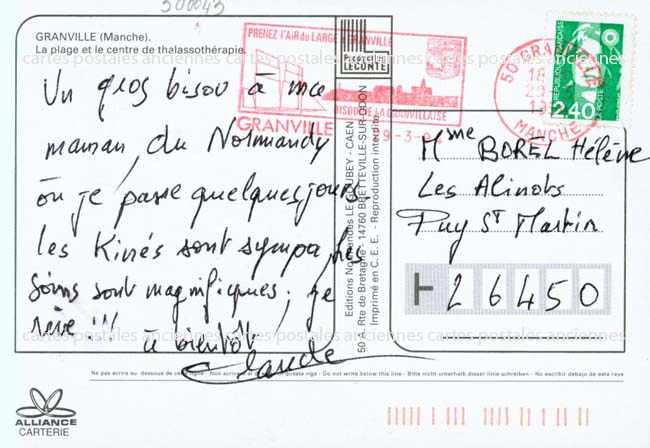 500043
GRANVILLE (Manche).
La plage et le centre de thalassothérapie.
cartes postales anciennes cartes postales anciennes cartes postales anciennes
Un gros bisou à ma
maman, du Normandy
où je passe quelques jours
les Kinés sont sympa, les
soins sont magnifiques ; je
rêve !!!
à bientôt
Claude
PRENEZ L'AIR du LARGE à GRANVILLE
BISQUE DE LA GRANVILLAISE
GRANVILLE
9-3-94
50 GRANVILLE
18
MANCHE
RÉPUBLIQUE FRANÇAISE
LA POSTE
2,40
Production
LECONTE
Editions Normandes LE GOUBEY - CAEN
50 A, Rte de Bretagne - 14760 BRETTEVILLE-SUR-ODON
Imprimé en C.E.E. - Reproduction interdite
Mme BOREL Hélène
Les Alinots
Puy St Martin
26450
cartes postales anciennes cartes postales anciennes cartes postales anciennes
Ne pas écrire au dessous de cette ligne - Non scrivere al di sotto di questa riga - Do not write below this line - Bitte nicht unterhalb dieser linie schreiben - No escribir debajo de esta raya
ALLIANCE
CARTERIE